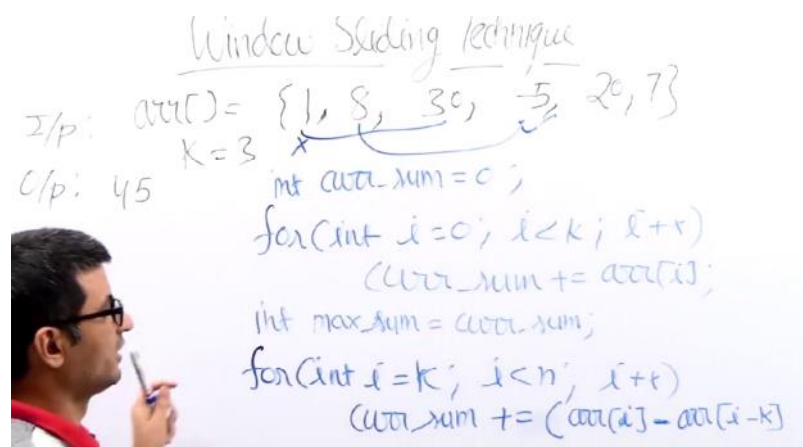 Window Sliding Technique
I/p: arr[] = {1, 8, 30, -5, 20, 7}
K = 3
O/p: 45
int curr_sum = 0;
for(int i=0; i<k; i++)
curr_sum += arr[i];
int max_sum = curr_sum;
for(int i=k; i<n; i++)
curr_sum += (arr[i] - arr[i-k]